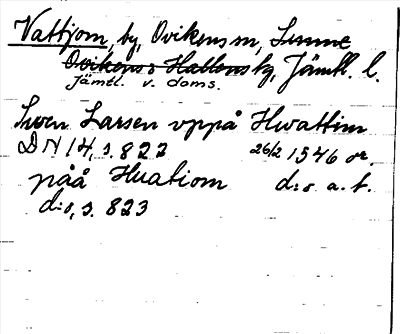 Vattjom, by, Ovikens sn, Sunne
Ovikens o Hallens tg, Jämtl. l.
Jämtl. v. doms.
Swen Larsen vppå Hwattim
DN 14, s. 822 26/2 1546 or.
påå Huatiom d:o a. t.
d:o, s. 823